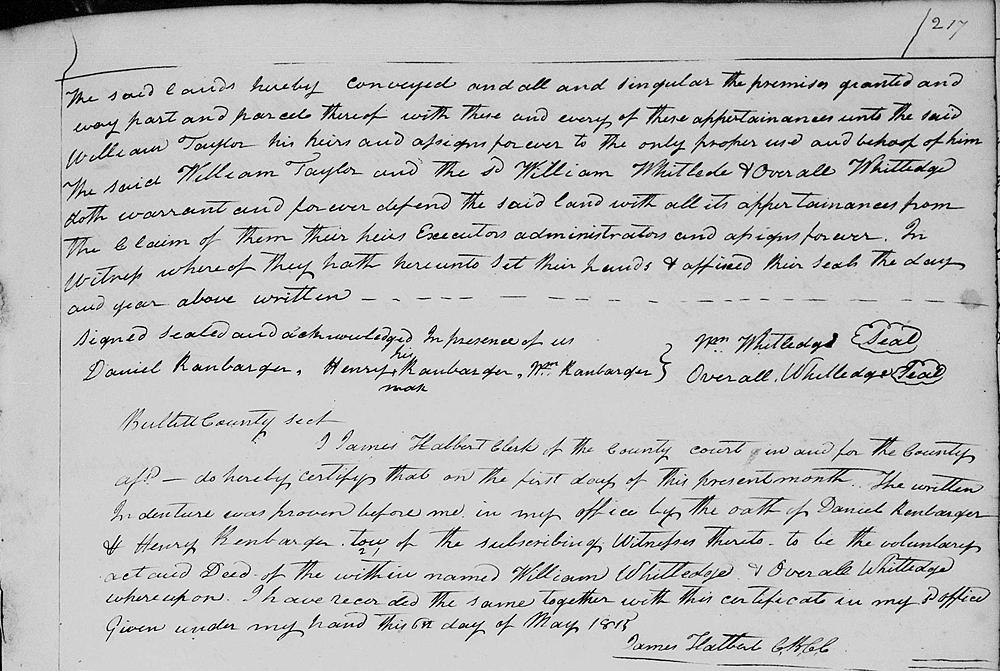 217
The said Lands hereby Conveyed and all and Singular the premises granted and
evry part and parcel thereof with these and every of these appertainances unto the said
William Taylor his heirs and assigns forever to the only proper use and behoof of him
The said William Taylor and the sd William Whitlede & Overall Whitledge
doth warrant and forever defend the said land with all its appertainances from
the Claim of them their heirs Executors administrators and assigns forever. In
Witness whereof they hath hereunto Set their hands & affixed their Seals the day
and year above written
Signed sealed and acknowledged In presence of us
Wm Whitledge Seal
Daniel Ranbarger, Henry his mark Ranbarger, Wm Ranbarger
Overall Whitledge Seal
Bullitt County sect
I James Halbert Clerk of the County court in and for the County
afsd — do hereby certify that on the first day of this present month The written
Indenture was proven before me in my office by the oath of Daniel Renbarger
& Henry Renbarger tow 2 of the subscribing Witnesses thereto to be the voluntary
act and Deed of the within named William Whitledge & Overall Whitledge
whereupon I have recorded the same together with this certificate in my sd office
Given under my hand this 6th day of May 1815
James Halbert C.B.C.C